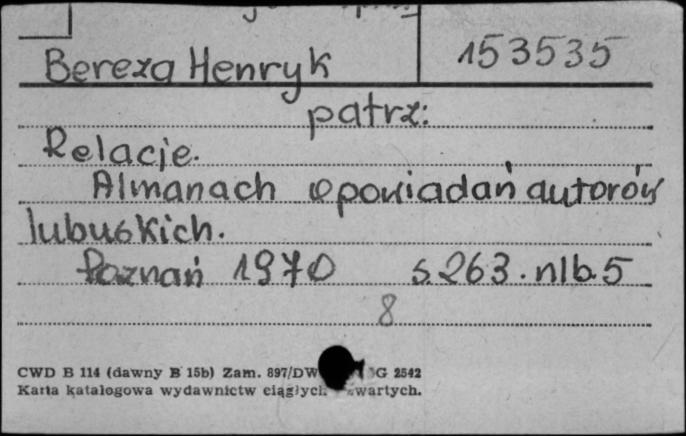 Bereza Henryk 153535
patrz:
Relacje.
Almanach opowiadań autorów
lubuskich.
Poznań 1970 s. 263. nlb. 5
8
CWD B 114 (dawny B 15b) Zam. 897/DW G 2542
Karta katalogowa wydawnictw ciągłych